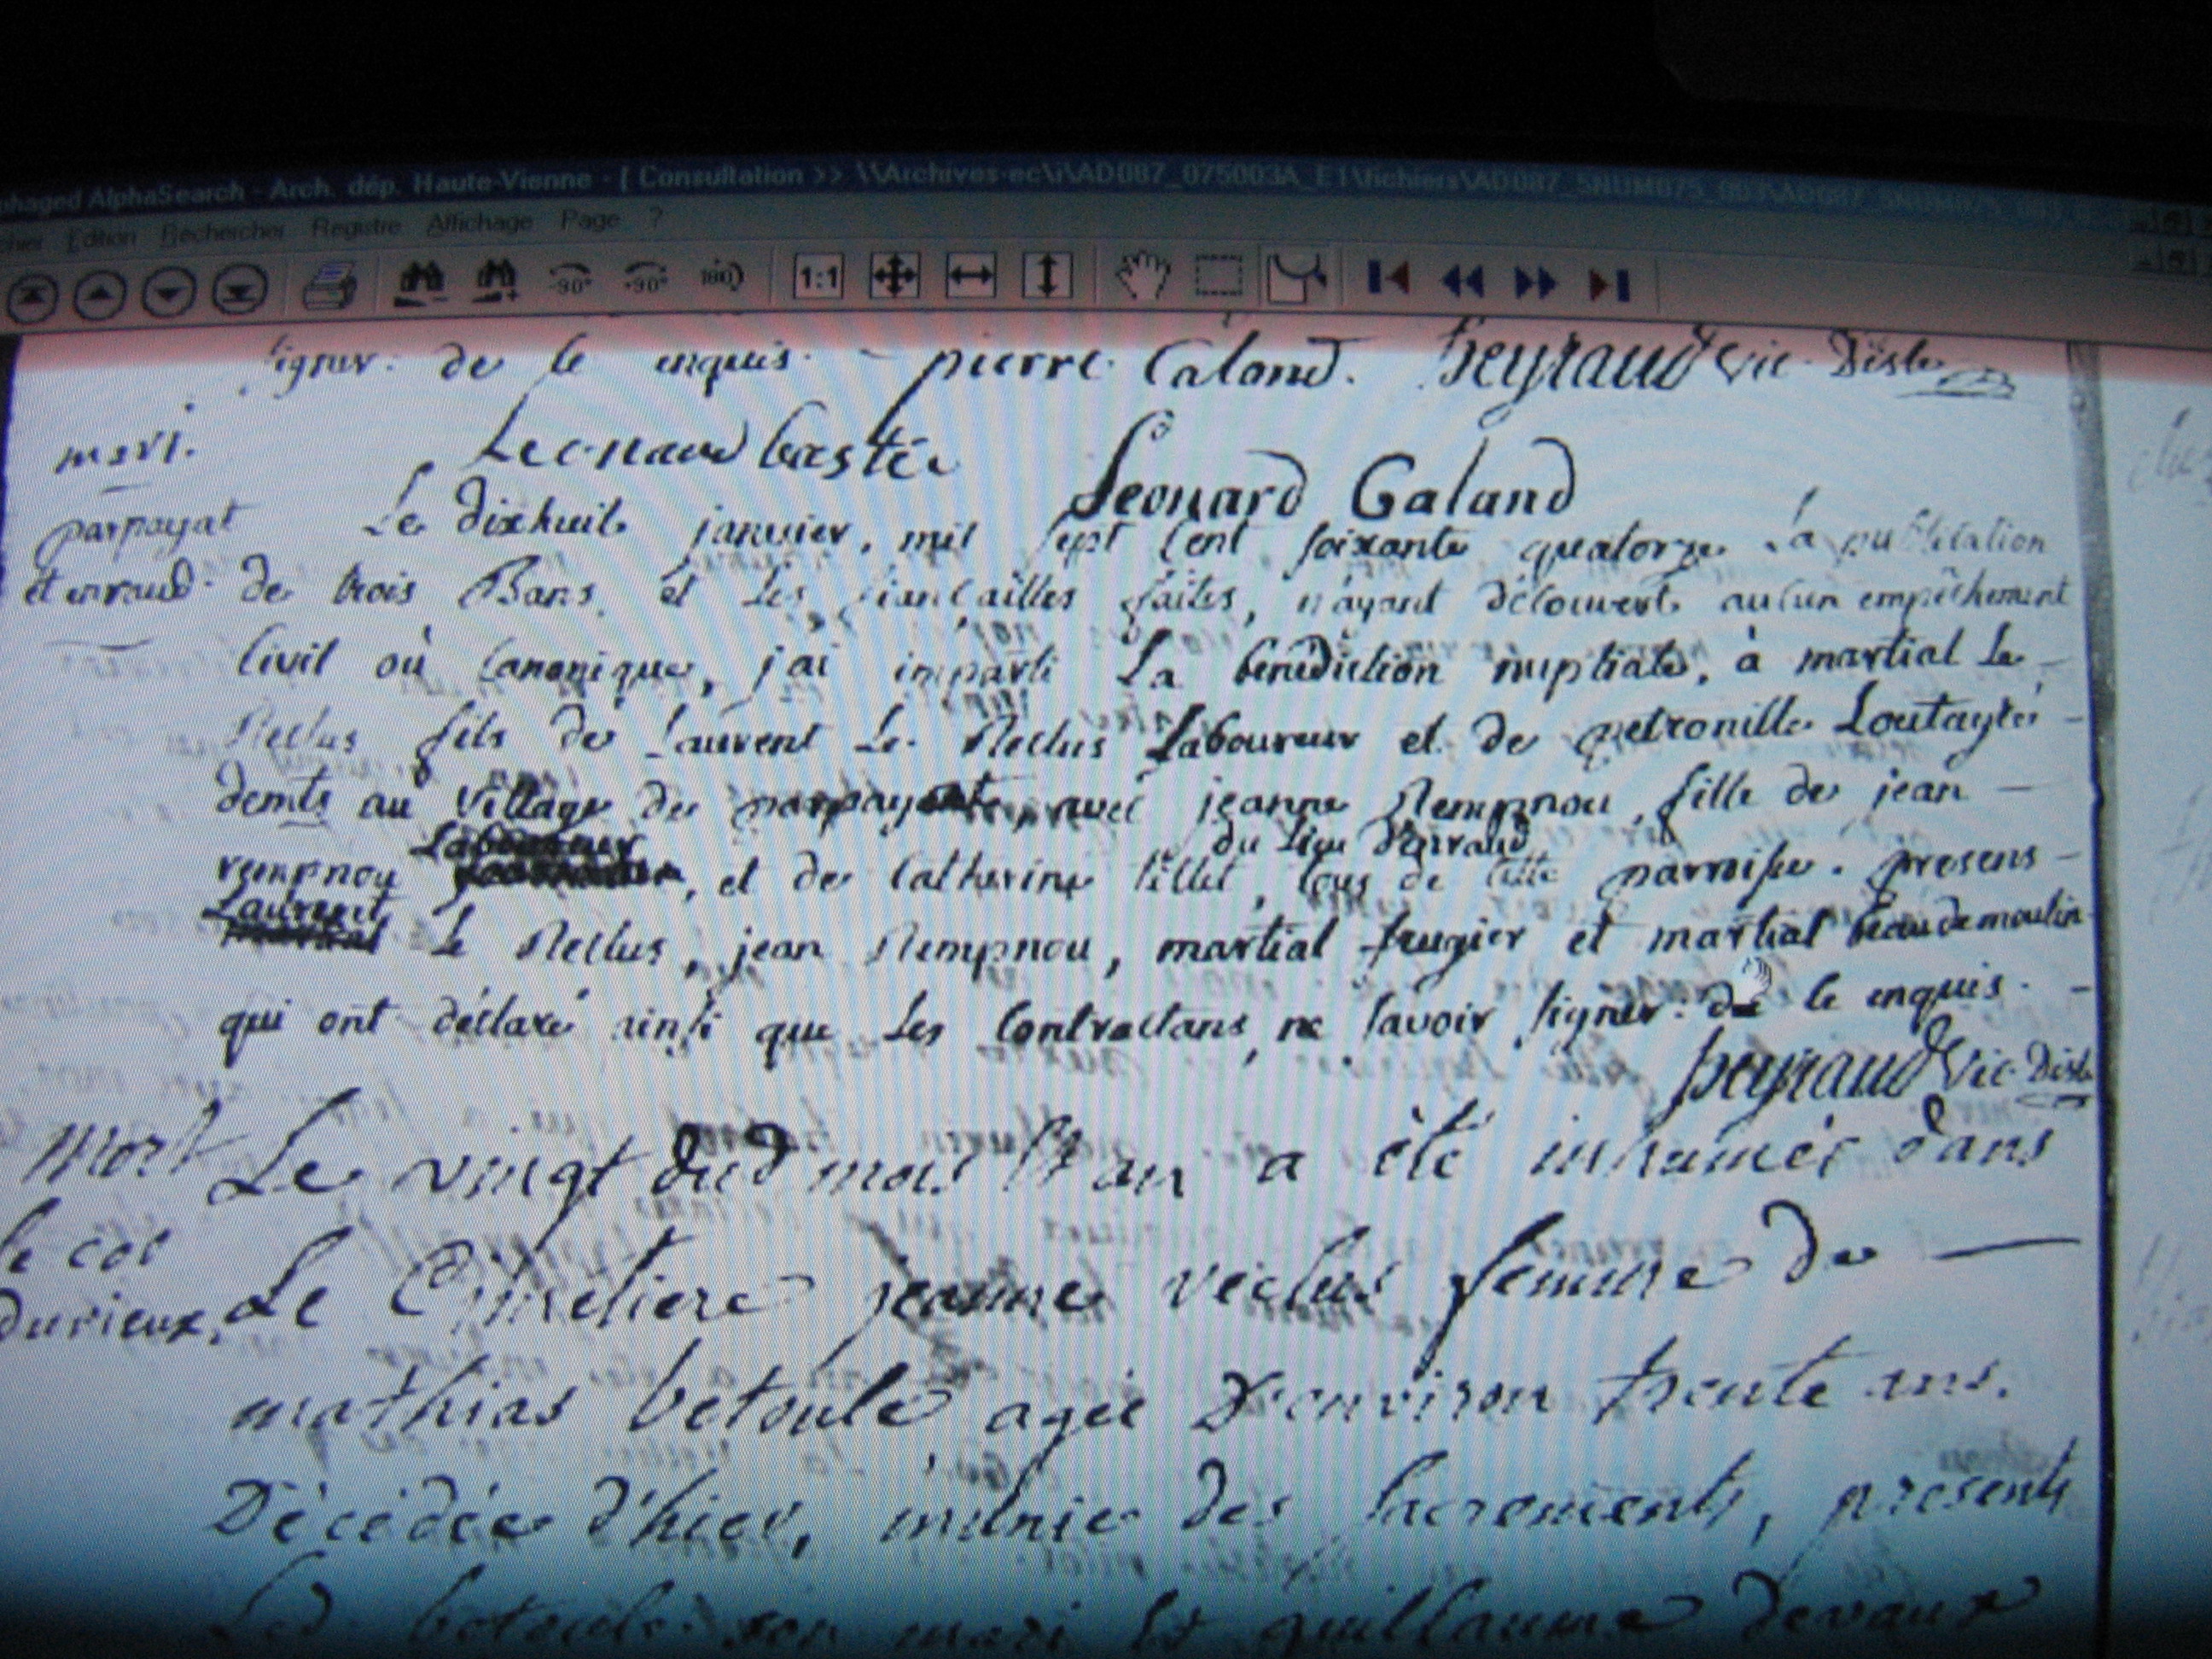 phaged AlphaSearch - Arch. dép. Haute-Vienne - [ Consultation >> \\Archives-ec\i\AD087_075003A_E1\fichiers\AD087_5NUM075_003
cher Edition Rechercher Registre Affichage Page ?
-90° +90° 180 1:1
signer. de ce enquis. pierre Caland. peyraud vic. Disle
mari.
Leonard Leonard Galand
parpayat
et enraud
Le dixhuit janvier, mil sept cent soixante quatorze La publication
de trois Bans et Les fiancailles faites, n'ayant découvert aucun empêchement
Civil où Canonique, j'ai imparti La bénédiction nuptiale, à martial Le
Reclus fils de Laurent Le Reclus Laboureur et de petronille Loutaylé
demts au Village de avec jeanne Rempnou, fille de jean
Laboureur du Lieu D'enraud
rempnou , et de Catherine tillet, tous de cette parroisse. presens
Laurent
Le Reclus, jean Rempnou, martial frugier et martial beaudemoulin
qui ont déclaré ainsi que Les Contractans, ne savoir signer: de ce enquis.
peyraud Vic Disle
mort
le col
durieux.
Le vingt dud mois et an a été inhumée dans
Le Cimetiere jeanne reclus femme de
mathias betoulé agée D'environ trente ans.
Décédée d'hier, munie des sacrements, présents
Led. betoule son mari et guillaume devaux